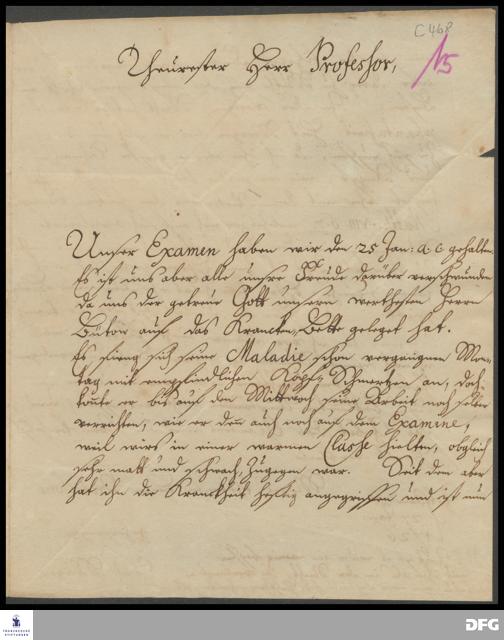 C 468
15
Theurester Herr Professor,
Unser Examen haben wir den 25 Jan: a. c. gehalten.
Es ist uns aber alle unsre Freude darüber verschwunden
da uns der getreue Gott unsern werthesten Herrn
Bütow auf das Krancken-Bette geleget hat.
Es fieng sich seine Maladie schon vergangnen Mon-
tag mit empfindlichen Kopf-Schmertzen an, doch
konte er bis auf den Mittwoch seine Arbeit noch selber
verrichten, wie er den auch noch auf dem Examine,
weil wirs in einer warmen Classe hielten, obgleich
sehr matt und schwach zugegen war. Seit dem aber
hat ihn die Kranckheit hefftig angegriffen und ist nun
FRANCKESCHE
STIFTUNGEN
DFG